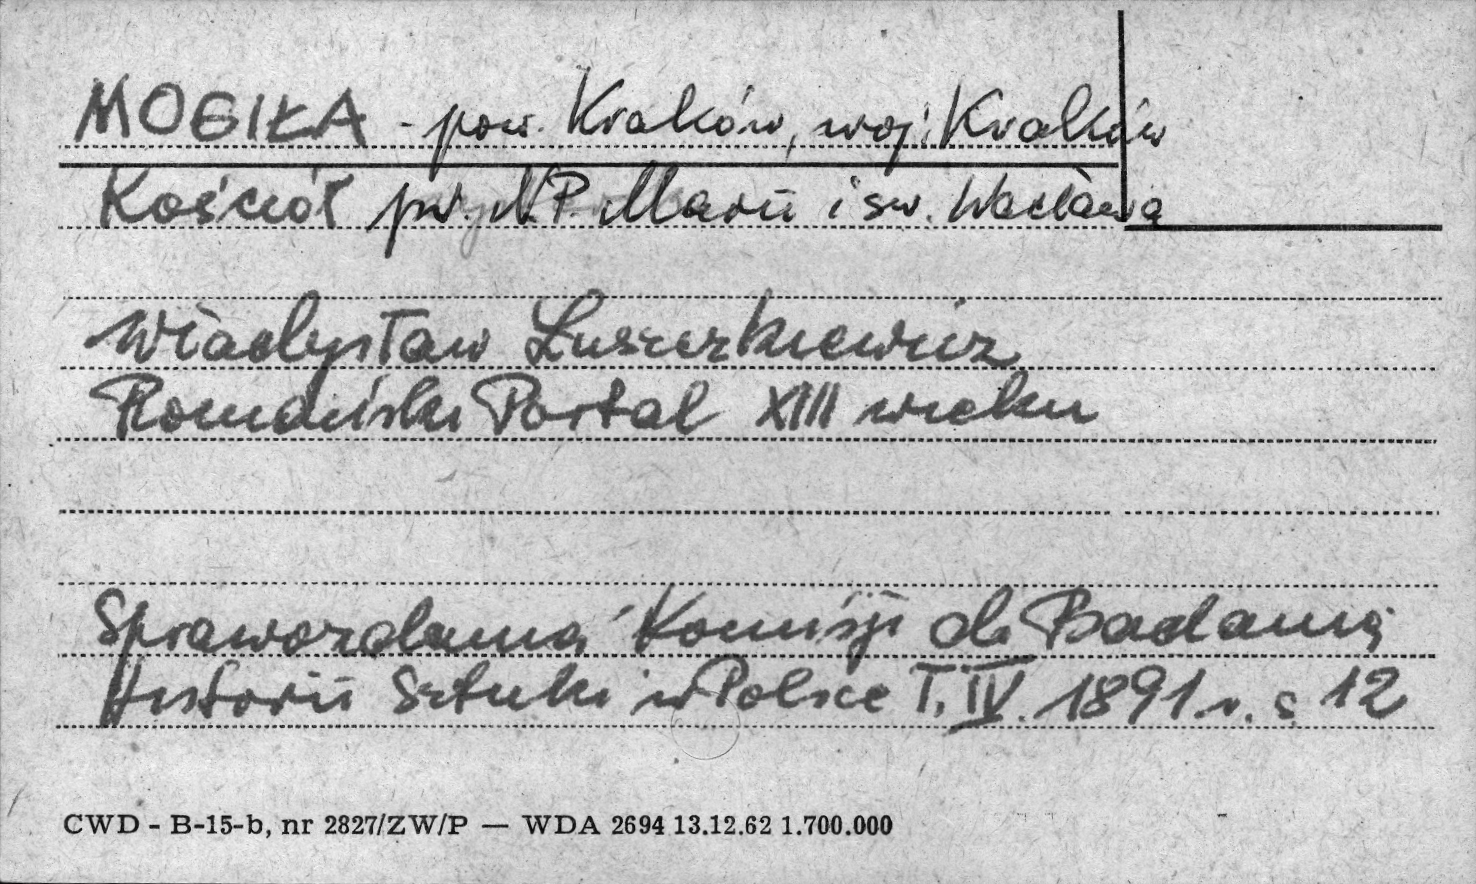 MOGIŁA - pow. Kraków, woj. Kraków
Kościół pw. N.P. Marii i św. Wacława
Władysław Łuszczkiewicz
Romański Portal XIII wieku
Sprawozdania Komisji do Badania
Historii Sztuki w Polsce T. IV. 1891 r. s 12
CWD - B-15-b, nr 2827/ZW/P — WDA 2694 13.12.62 1.700.000